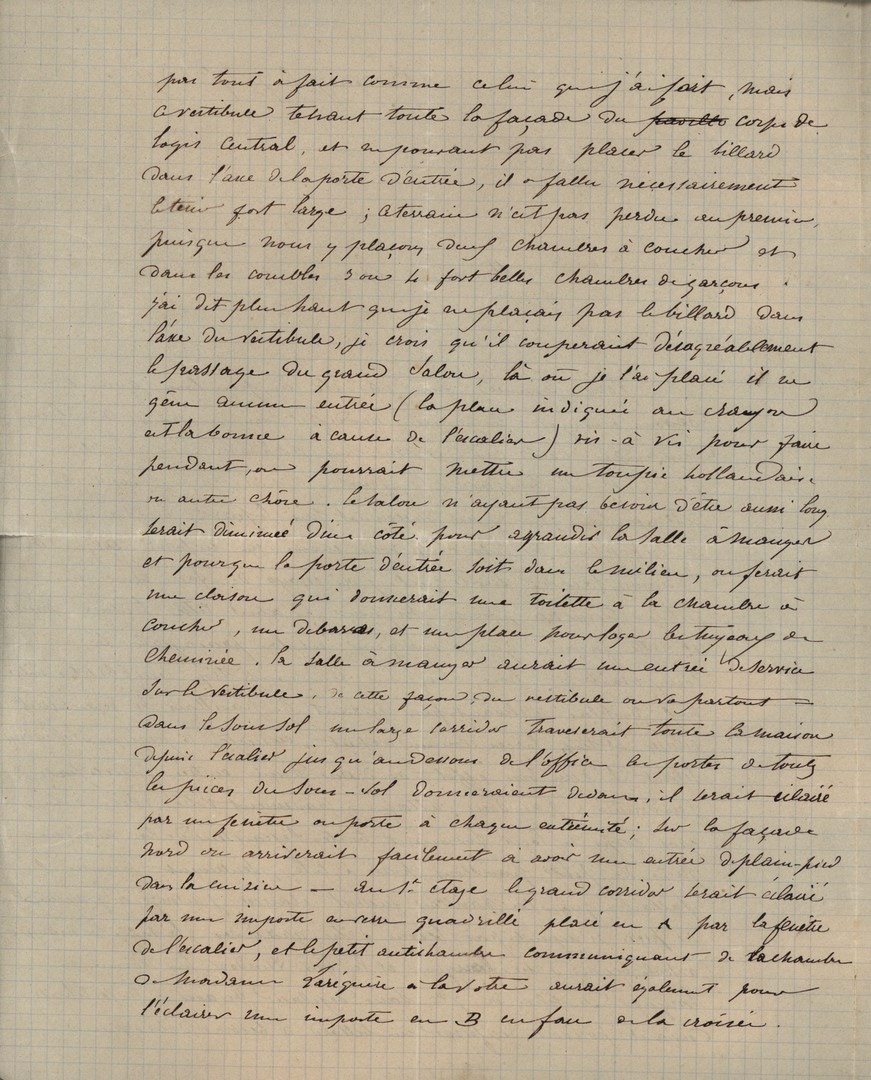 pas tout à fait comme celui que j'ai fait, mais
ce vestibule tenant toute la façade du pavillo corps de
logis central, et ne pouvant pas placer le billard
dans l'axe de la porte d'entrée, il a fallu nécessairement
le tenir fort large ; ce terrain n'est pas perdu au premier,
puisque nous y plaçons deux chambres à coucher et
dans les combles 3 ou 4 fort belles chambres de garçons.
j'ai dit plus haut que je ne plaçais pas le billard dans
l'axe du vestibule, je crois qu'il couperait désagréablement
le passage du grand salon, là où je l'ai placé il ne
gêne aucune entrée (la place indiquée au crayon
est la bonne à cause de l'escalier) vis-à vis pour faire
pendant, on pourrait mettre un toupie hollandaise
ou autre chôse. le salon n'ayant pas besoin d'être aussi long
serait diminué d'un côté pour agrandir la salle à manger
et pour que la porte d'entrée soit dans le milieu, on ferait
une cloison qui donnerait une toilette à la chambre à
coucher, un debarras, et une place pour loger les tuyaux de
cheminée. la salle à manger aurait une entrée de service
sur le vestibule, de cette façon, du vestibule on va partout —
dans le sous sol un large corridor traverserait toute la maison
depuis l'escalier jusqu'au dessous de l'office les portes de toutes
les pièces du sous-sol donneraient dedans, il serait éclairé
par une fenêtre ou porte à chaque extrémité ; sur la façade
nord on arriverait facilement à avoir une entrée de plain-pied
dans la cuisine — au 1er étage le grand corridor serait éclairé
par une imposte en verre quadrillé placé en A par la fenêtre
de l'escalier, et le petit antichambre communiquant de la chambre
de Madame Laréguère à la votre aurait également pour
l'éclairer une imposte en B en face de la croisée.